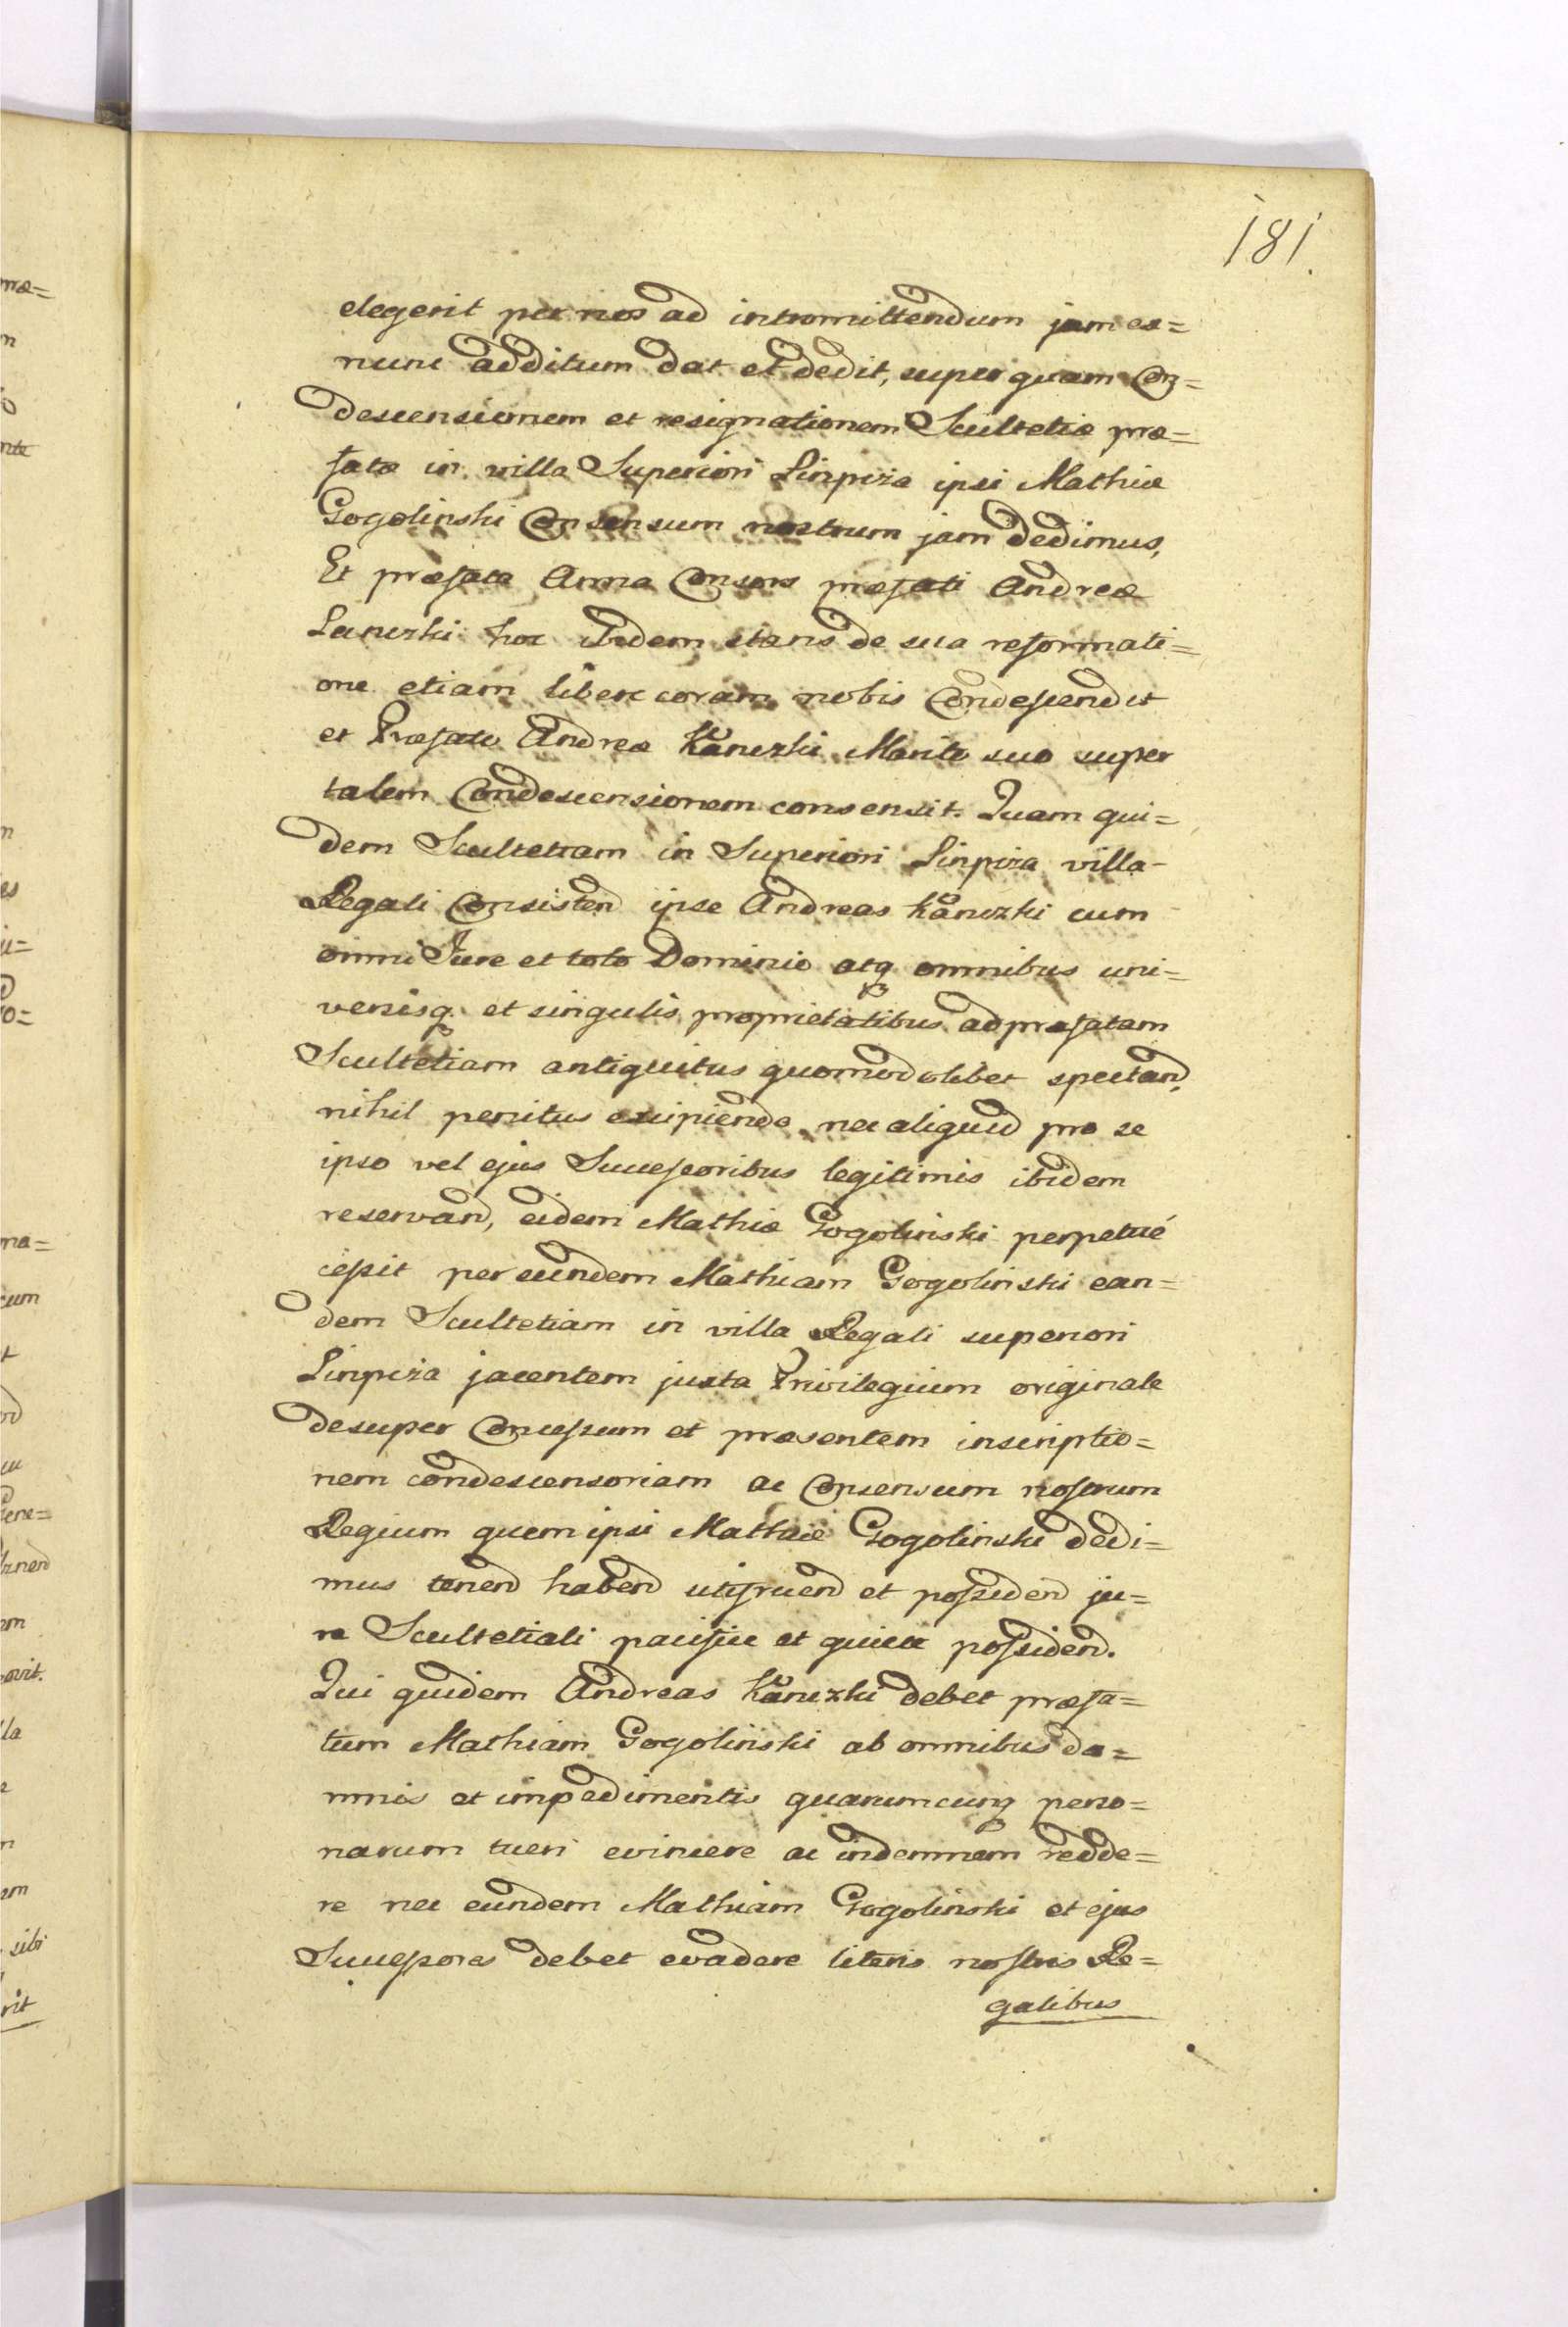 181.
elegerit per nos ad intromittendum jam ex=
nunc additum dat et dedit, super quam Con=
descensionem et resignationem Scultetiæ præ=
fatæ in villa Superiori Linpiza ipsi Mathiæ
Gogolinski Consensum nostrum jam dedimus,
Et præfata Anna Consors præfati Andreæ
hoc ibidem stans de sua reformati=
one etiam libere coram nobis Condescendit
et Præfato Andreæ Kanczki Marito suo super
talem Condescensionem consensit. Quam qui=
dem Scultetiam in Superiori Linpiza villa
Regali Consistend ipse Andreas Kanczki cum
omni Jure et toto Dominio atq omnibus uni=
versisq. et singulis proprietatibus ad præfatam
Scultetiam antiquitus quomodolibet spectand,
nihil penitus excipiendo nec aliquid pro se
ipso vel ejus Successoribus legitimis ibidem
reservand, eidem Mathiæ Gogolinski perpetué
cessit per eundem Mathiam Gogolinski ean=
dem Scultetiam in villa Regali superiori
Linpiza jacentem juxta Privilegium originale
desuper Concessum et præsentem inscriptio=
nem condescensoriam ac Consensum nostrum
Regium quem ipsi Mathiæ Gogolinski dedi=
mus tenend habend utifruend et possidend ju=
re Scultetiali pacifice et quiete possidend.
Qui quidem Andreas Kanczki debet præfa=
tum Mathiam Gogolinski ab omnibus da=
mnis et impedimentis quarumcunq perso=
narum tueri evincere ac indemnem redde=
re nec eundem Mathiam Gogolinski et ejus
Successores debet evadere literis nostris Re=
galibus